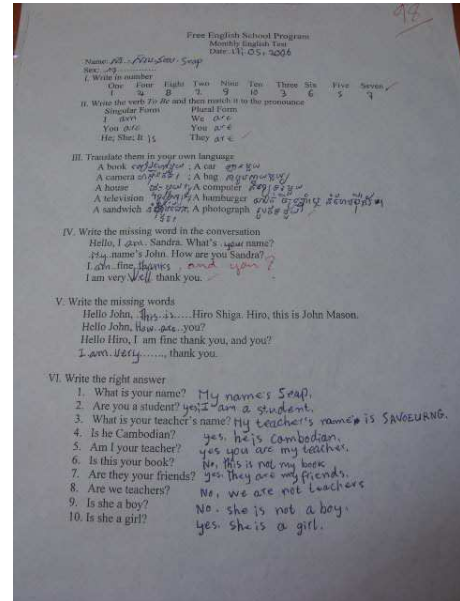 98
Free English School Program
Monthly English Test
Date 05, 2006
Name: Seap
Sex:
I. Write in number
One Four Eight Two Nine Ten Three Six Five Seven
1 4 8 2 9 10 3 6 5 7
II. Write the verb To Be and then match it to the pronounce
Singular Form Plural Form
I am We are
You are You are
He; She; It is They are
III. Translate them in your own language
A book ; A car
A camera ; A bag
A house ; A computer
A television ; A hamburger
A sandwich ; A photograph
IV. Write the missing word in the conversation
Hello, I am Sandra. What's your name?
My name's John. How are you Sandra?
I am fine, thanks, and you?
I am very well thank you.
V. Write the missing words
Hello John, This is Hiro Shiga. Hiro, this is John Mason.
Hello John, How are you?
Hello Hiro, I am fine thank you, and you?
I am very......., thank you.
VI. Write the right answer
1. What is your name? My name's Seap.
2. Are you a student? yes, I am a student.
3. What is your teacher's name? My teacher's name is SAVOEURNG.
4. Is he Cambodian? yes, he is cambodian.
5. Am I your teacher? yes you are my teacher.
6. Is this your book? No, this is not my book
7. Are they your friends? yes. they are my friends.
8. Are we teachers? No, we are not teachers
9. Is she a boy? No. she is not a boy.
10. Is she a girl? yes. she is a girl.